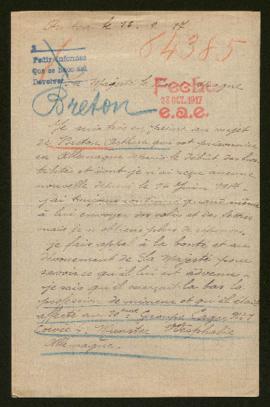 le 16 9 17
84385
1
Pedir informes
Que se haga así
Devolver
Sa Majesté le Roi d'Espagne
Fecha
23 OCT. 1917
e.a.e.
Breton
Je suis très en peine au sujet
de Breton Arthur qui est prisonnier
en Allemagne depuis le début des hos
tilités et dont je n'ai reçu aucune
nouvelle depuis le 1914.
J'ai toujours continué quand même
à lui envoyer des colis et des lettres
mais je n'obtiens plus de réponse.
Je fais appel à la bonté et au
dévouement de Sa Majesté pour
savoir ce qu'il lui est advenu.
Je sais qu'il exerçait là bas la
profession de mineur et qu'il était
affecté au Groupe
Munster Westphalie
Allemagne.